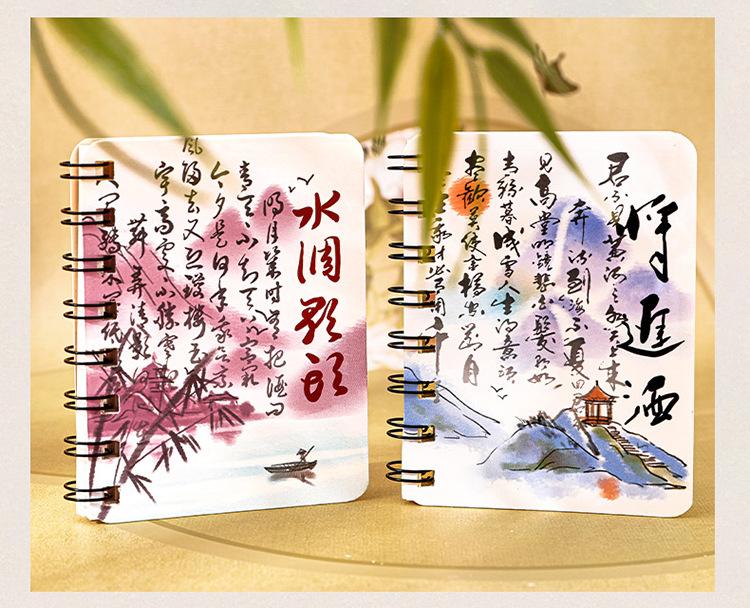 水调歌头
明月几时有把酒问
青天不知天上宫阙
今夕是何年我欲乘
风归去又恐琼楼玉
宇高处不胜寒
舞弄清影
将進酒
君不见黄河之水天上来
奔流到海不复回
见高堂明镜悲白髮朝如
青丝暮成雪人生得意须
盡歡莫使金樽空对月
天生我材必有用千